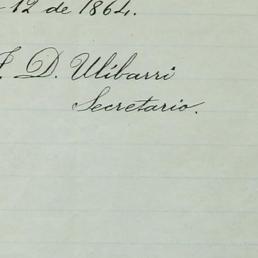 12 de 1864.
D. Ulibarri
Secretario.